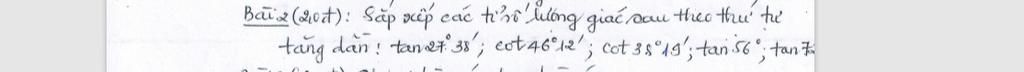 Bài 2 (2,0đ): Sắp xếp các tỉ số lượng giác sau theo thứ tự
tăng dần: tan 27°38'; cot 46°12'; cot 38°19'; tan 56°; tan 7